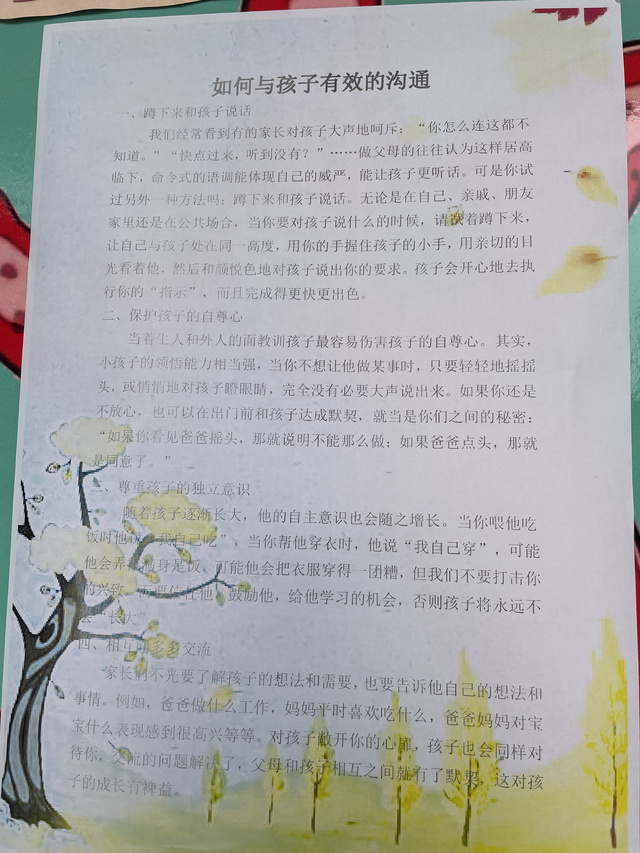 如何与孩子有效的沟通
一、蹲下来和孩子说话
我们经常看到有的家长对孩子大声地呵斥：“你怎么连这都不
知道。”“快点过来，听到没有？”……做父母的往往认为这样居高
临下，命令式的语调能体现自己的威严，能让孩子更听话。可是你试
过另外一种方法吗：蹲下来和孩子说话。无论是在自己、亲戚、朋友
家里还是在公共场合，当你要对孩子说什么的时候，请试着蹲下来，
让自己与孩子处在同一高度，用你的手握住孩子的小手，用亲切的目
光看着他，然后和颜悦色地对孩子说出你的要求。孩子会开心地去执
行你的“指示”，而且完成得更快更出色。
二、保护孩子的自尊心
当着生人和外人的面教训孩子最容易伤害孩子的自尊心。其实，
小孩子的领悟能力相当强，当你不想让他做某事时，只要轻轻地摇摇
头，或悄悄地对孩子瞪眼睛，完全没有必要大声说出来。如果你还是
不放心，也可以在出门前和孩子达成默契，就当是你们之间的秘密：
“如果你看见爸爸摇头，那就说明不能那么做；如果爸爸点头，那就
是同意了。”
三、尊重孩子的独立意识
随着孩子逐渐长大，他的自主意识也会随之增长。当你喂他吃
饭时他说“我自己吃”，当你帮他穿衣时，他说“我自己穿”，可能
他会弄得满身是饭，可能他会把衣服穿得一团糟，但我们不要打击你
的兴致，而要信任他，鼓励他，给他学习的机会，否则孩子将永远不
会“长大”
四、相互间多多交流
家长们不光要了解孩子的想法和需要，也要告诉他自己的想法和
事情。例如，爸爸做什么工作，妈妈平时喜欢吃什么，爸爸妈妈对宝
宝什么表现感到很高兴等等。对孩子敞开你的心扉，孩子也会同样对
待你，交流的问题解决了，父母和孩子相互之间就有了默契，这对孩
子的成长有裨益。